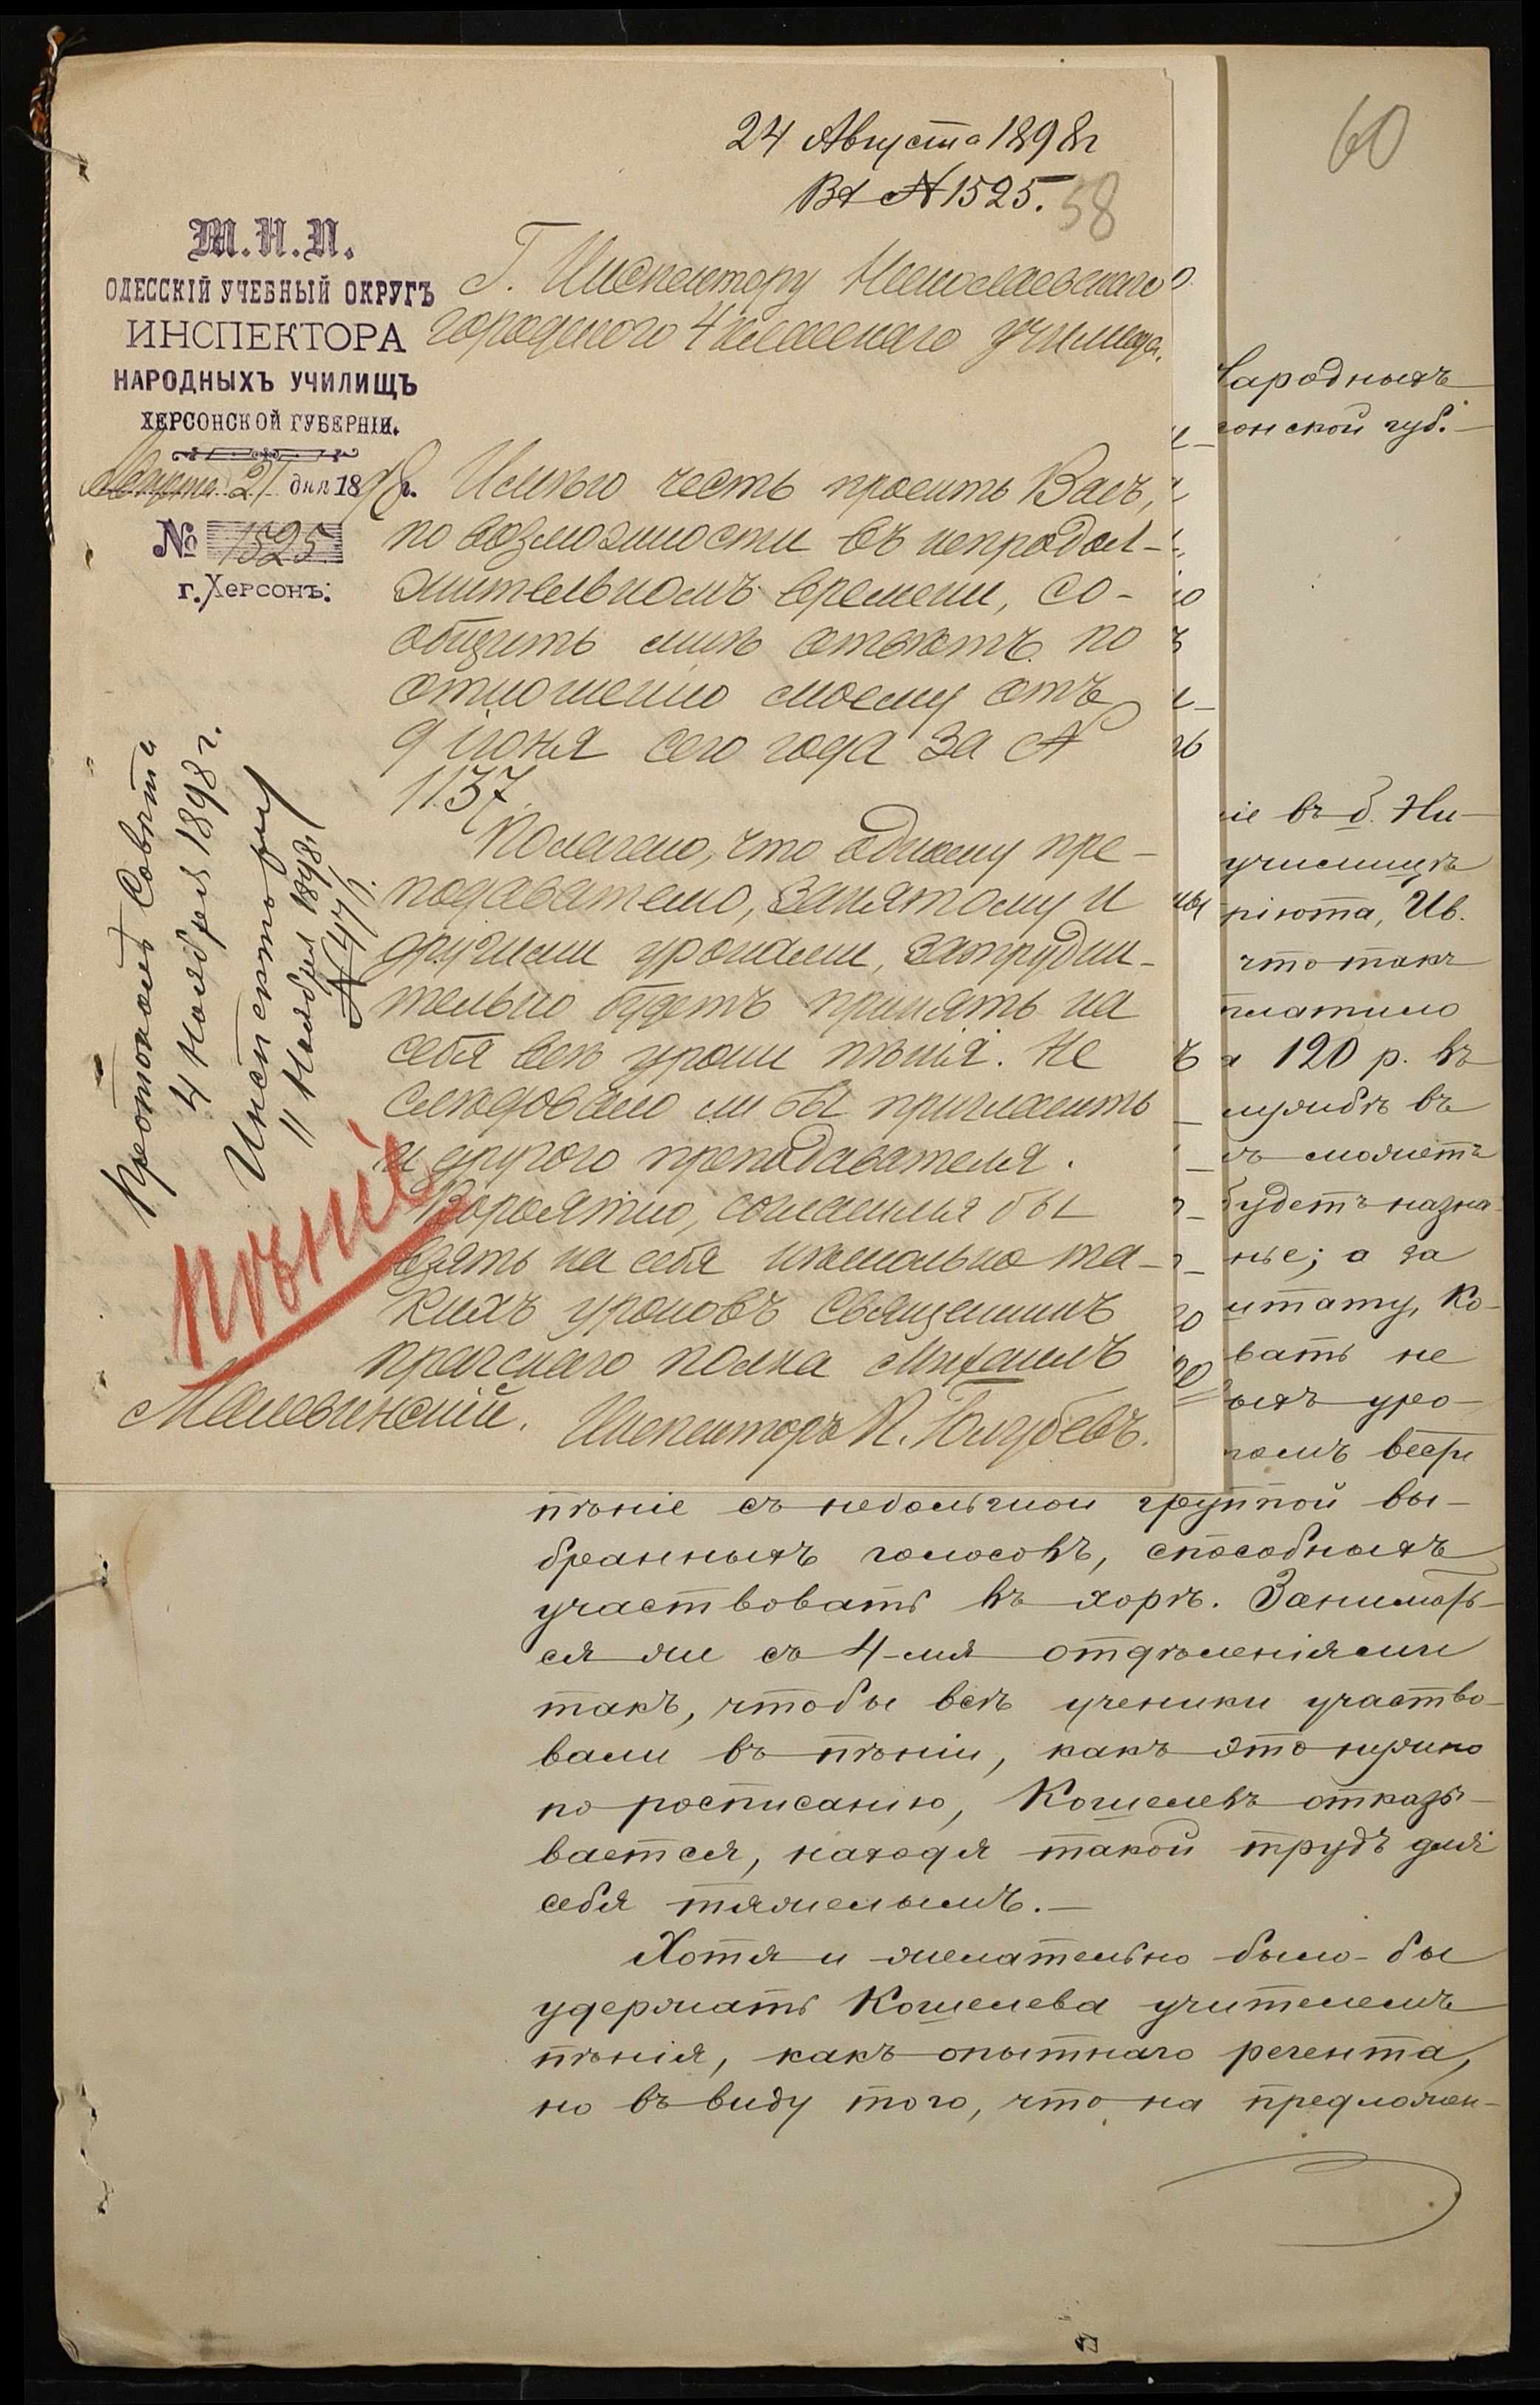 24 Августа 1898 г
Вх № 1525.
58
60
М.Н.П.
ОДЕССКІЙ УЧЕБНЫЙ ОКРУГЪ
ИНСПЕКТОРА
НАРОДНЫХЪ УЧИЛИЩЪ
ХЕРСОНСКОЙ ГУБЕРНІИ.
21 дня 1898 г.
№ 1525
г. Херсонъ.
Г. Инспектору Николаевскаго
городского 4 класснаго училища.
Имѣю честь просить Васъ,
по возможности въ непродол-
жительномъ времени, со-
общить мнѣ отвѣтъ по
отношенію моему отъ
9 іюня сего года за №
1137.
Полагаю, что одному пре-
подавателю, занятому и
другими уроками, затрудни-
тельно будетъ принять на
себя всѣ уроки пѣнія. Не
слѣдовало ли бы пригласить
и другого преподавателя.
Вѣроятно, согласился бы
взять на себя нѣсколько та-
кихъ уроковъ священникъ
пражскаго полка Михаилъ
Инспекторъ П. Голубевъ.
Протоколъ Совѣта
4 Ноября 1898 г.
Инспектору
11 Ноября 1898 г
№ 476.
пѣніе
Народныхъ
сонской губ.
ніе въ б. Ни-
училищѣ
ріюта, Ив.
что такъ
платило
а 120 р. въ
службѣ въ
ъ можетъ
будетъ назна-
нье; а за
штату, Ко-
вать не
ыхъ уро-
пѣніе съ небольшой группой вы-
бранныхъ голосовъ, способныхъ
участвовать въ хорѣ. Заниматъ-
ся же съ 4-мя отдѣленіями
такъ, чтобы всѣ ученики участво-
вали въ пѣніи, какъ это нужно
по росписанію, Кошелевъ отказы-
вается, находя такой трудъ для
себя тяжелымъ.—
Хотя и желательно было-бы
удержать Кошелева учителемъ
пѣнія, какъ опытнаго регента,
но въ виду того, что на предложен-